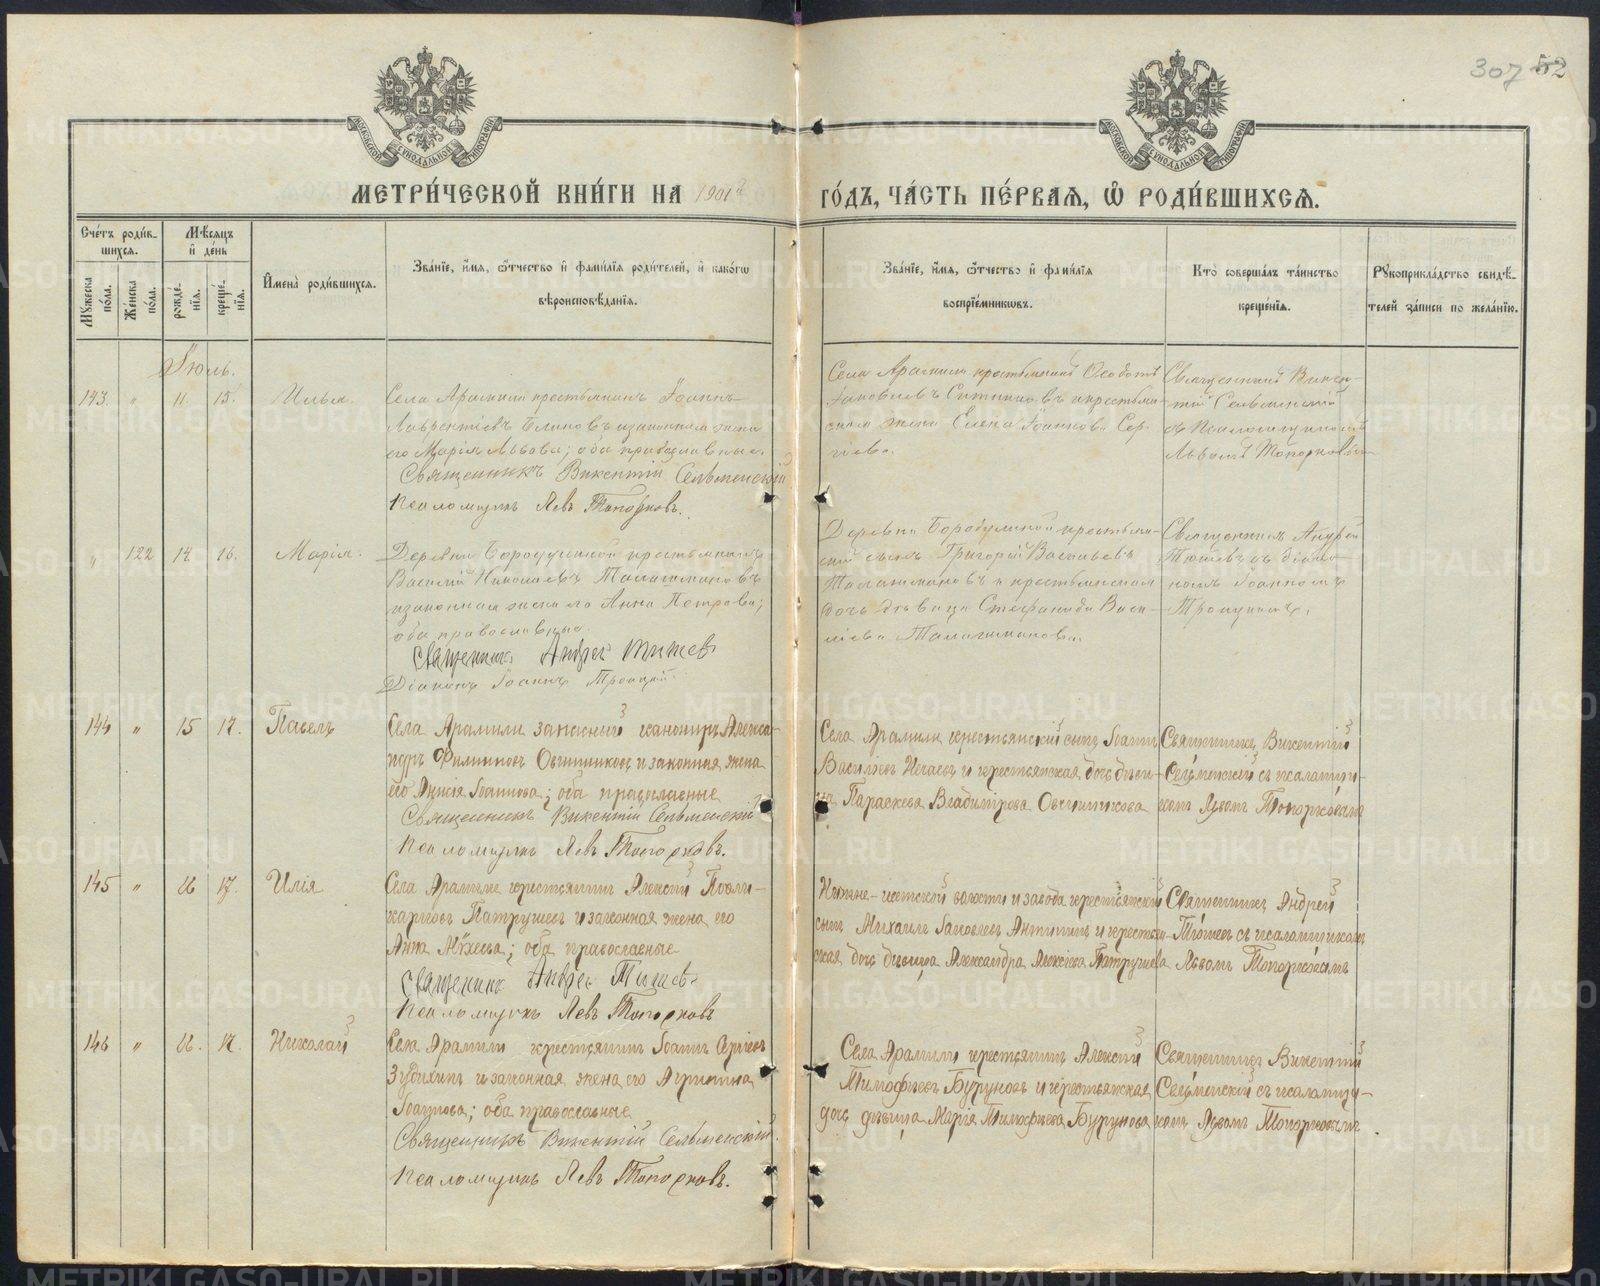 307 52
МЕТРИ́ЧЕСКОЙ КНИ́ГИ НА 1901й ГО́ДЪ, ЧА́СТЬ ПЕ́РВАЯ, Ѽ РОДИ́ВШИХСЯ.
Сче́тъ роди́в-
шихся.
Мꙋ́жеска по́ла.
Же́нска по́ла.
Мѣ́сяцъ
и҆ де́нь
рожде́-
нїѧ.
креще́-
нїѧ.
И҆мена̀ роди́вшихся.
Зва́нїе, и҆́мѧ, ѻ҆́тчество и҆ фами́лїѧ роди́телей, и҆ како́гѡ
вѣроисповѣ́данїѧ.
Зва́нїе, и҆́мѧ, ѻ҆́тчество и҆ фами́лїѧ
воспрїе́мникѡвъ.
Кто̀ соверша́лъ та́инство
креще́нїѧ.
Рꙋкоприкла́дство свидѣ́-
телей за́писи по жела́нїю.
Іюль.
143. " 11. 15. Илья.
Села Арамили крестьянинъ Іоаннъ
Лаврентіевъ Блиновъ и законная жена
его Марія Львова; оба православные.
Священникъ Викентій Сельменскій
Псаломщикъ Левъ Топорковъ.
Села Арамили крестьянинъ
Іаковлевъ Ситниковъ и крестьян-
ская жена Елена Іоаннова Сер-
гіева.
Священникъ Викен-
тій Сельменскій
съ Псаломщикомъ
Львомъ Топорковымъ
" 122 14. 16. Марія.
Деревни Бородулиной крестьянинъ
Василій Николаевъ Талашмановъ
и законная жена его Анна Петрова;
оба православные.
Священникъ Андрей Тюшевъ
Діаконъ Іоаннъ Троицкій.
Деревни Бородулиной крестьян-
скій сынъ Григорій Васильевъ
Талашмановъ и крестьянская
дочь дѣвица Стефанида Васи-
ліева Талашманова.
Священникъ Андрей
Тюшевъ съ діако-
номъ Іоанномъ
Троицкимъ.
144 " 15 17. Павелъ
Села Арамили запасный канониръ Алекса-
ндръ Филипповъ Овчинниковъ и законная жена
его Анисія Іоаннова; оба православные
Священникъ Викентій Сельменскій
Псаломщикъ Левъ Топорковъ.
Села Арамили крестьянскій сынъ Іоаннъ
Василіевъ и крестьянская дочь дѣви-
ца Параскева Владимірова Овчинникова
Священникъ Викентій
Сельменскій съ псаломщи-
комъ Львомъ Топорковымъ
145 " 16 17. Илія
Села Арамили крестьянинъ Алексій Поли-
карповъ Патрушевъ и законная жена его
Анна; оба православные
Священникъ Андрей Тюшевъ
Псаломщикъ Левъ Топорковъ
Нижне-исетской волости и завода крестьянскій
сынъ Михаилъ Іаковлевъ Антипинъ и крестьян-
ская дочь дѣвица Александра Алексіева Патрушева
Священникъ Андрей
Тюшевъ съ псаломщикомъ
Львомъ Топорковымъ
146 " 16. 17. Николай
Села Арамили крестьянинъ Іоаннъ Сергіевъ
Зубихинъ и законная жена его Агрипина
Іоаннова; оба православные
Священникъ Викентій Сельменскій.
Псаломщикъ Левъ Топорковъ.
Села Арамили крестьянинъ Алексій
Тимофеевъ Буруновъ и крестьянская
дочь дѣвица Марія Тимофеева Бурунова
Священникъ Викентій
Сельменскій съ псаломщи-
комъ Львомъ Топорковымъ.